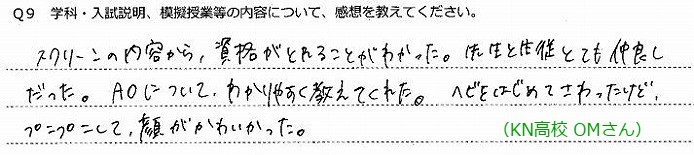 Q9 学科・入試説明、模擬授業等の内容について、感想を教えてください。
スクリーンの内容から、資格がとれることがわかった。先生と生徒とても仲良し
だった。AOについて、わかりやすく教えてくれた。ヘビをはじめてさわったけど、
プニプニして、顔がかわいかった。
(KN高校 OMさん)